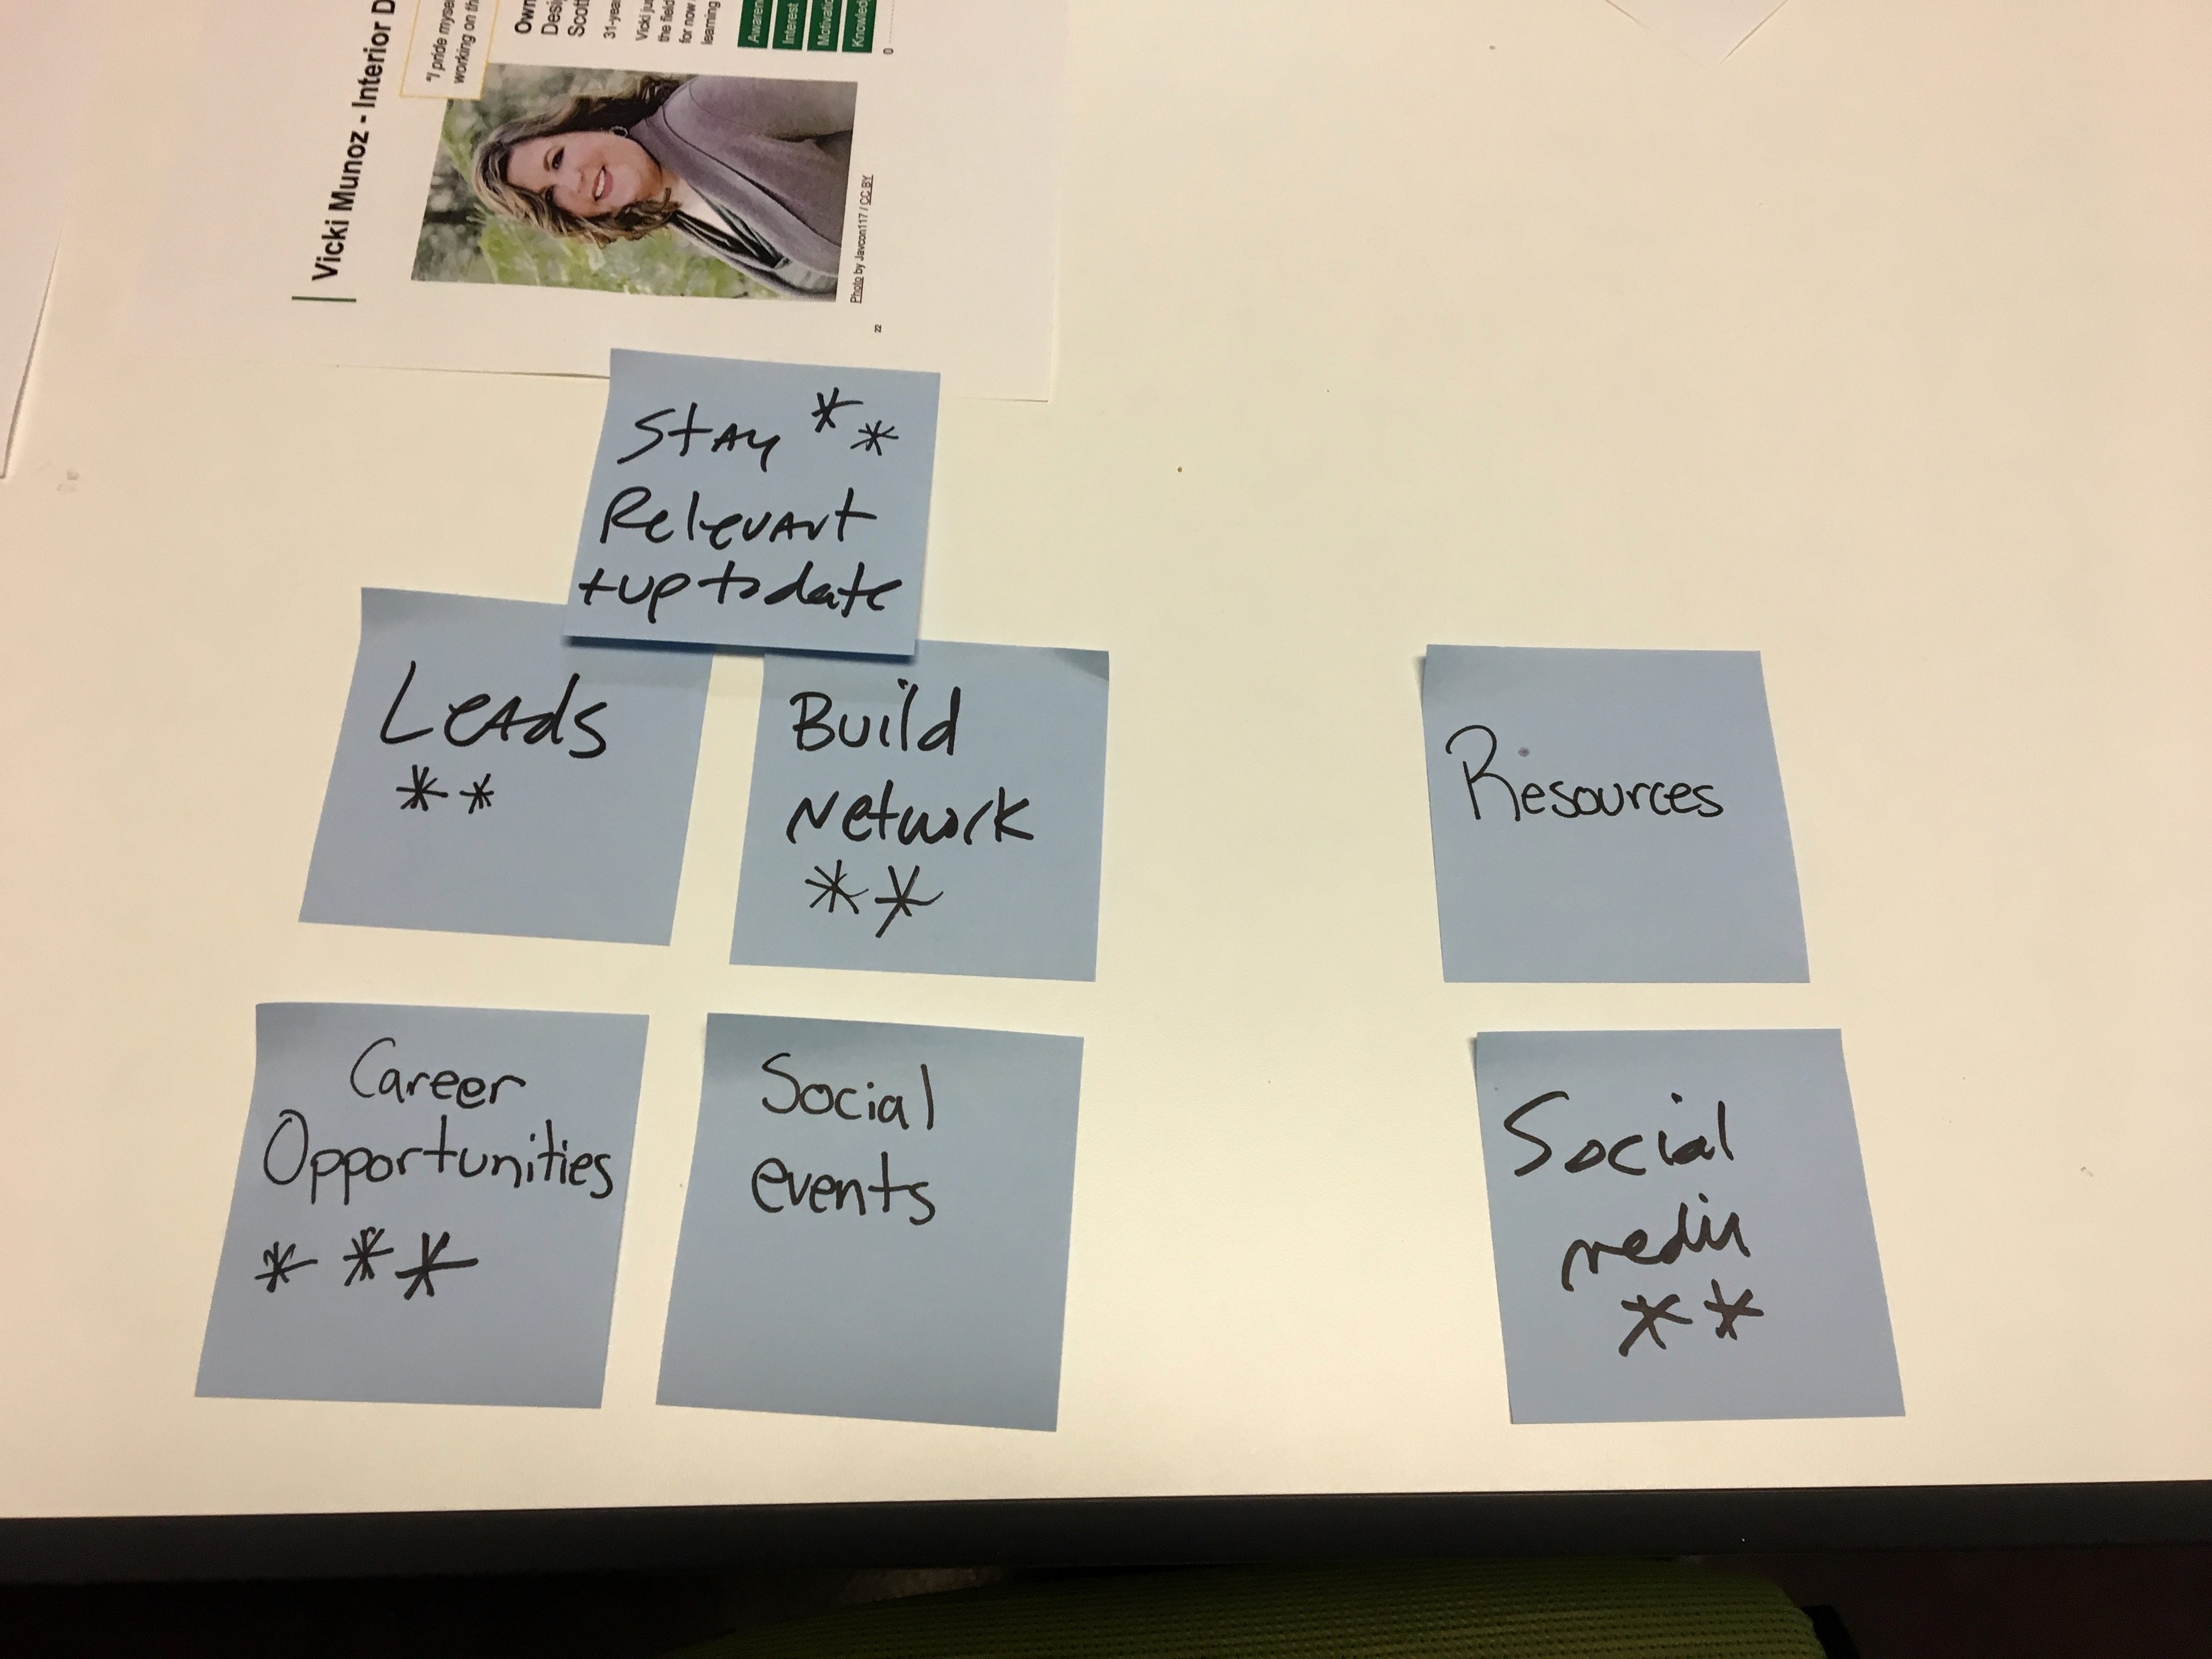 Vicki Munoz - Interior D
"I pride myse
working on th
Own
Desi
Scott
31-yea
Vicki ju
the field
for now
learning
Awaren
Interest
Motivatio
Knowled
0
Photo by Javcon117 / CC BY
22
Stay **
Relevant
+up to date
Leads
**
Build
Network
**
Resources
Career
Opportunities
***
Social
events
Social
media
**